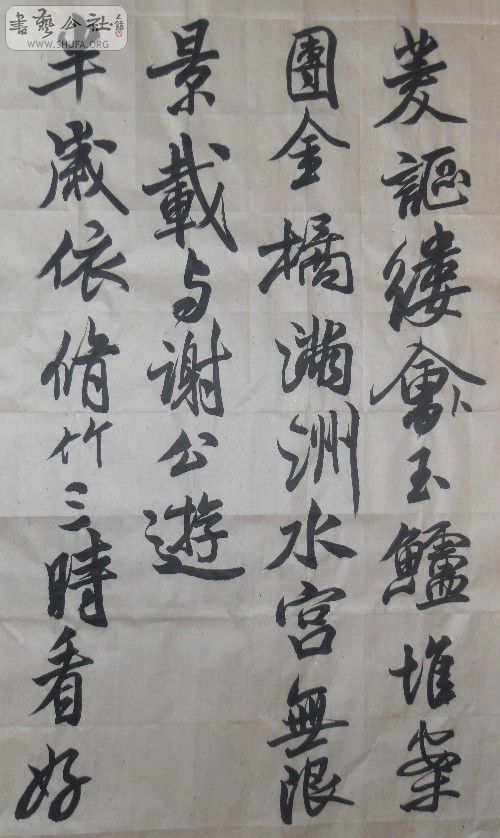 書藝公社
WWW.SHUFA.ORG
菱謳縷會卜玉鱸堆案
團金橘滿洲水宮無限
景載与謝公遊
半歲依脩竹三時看好